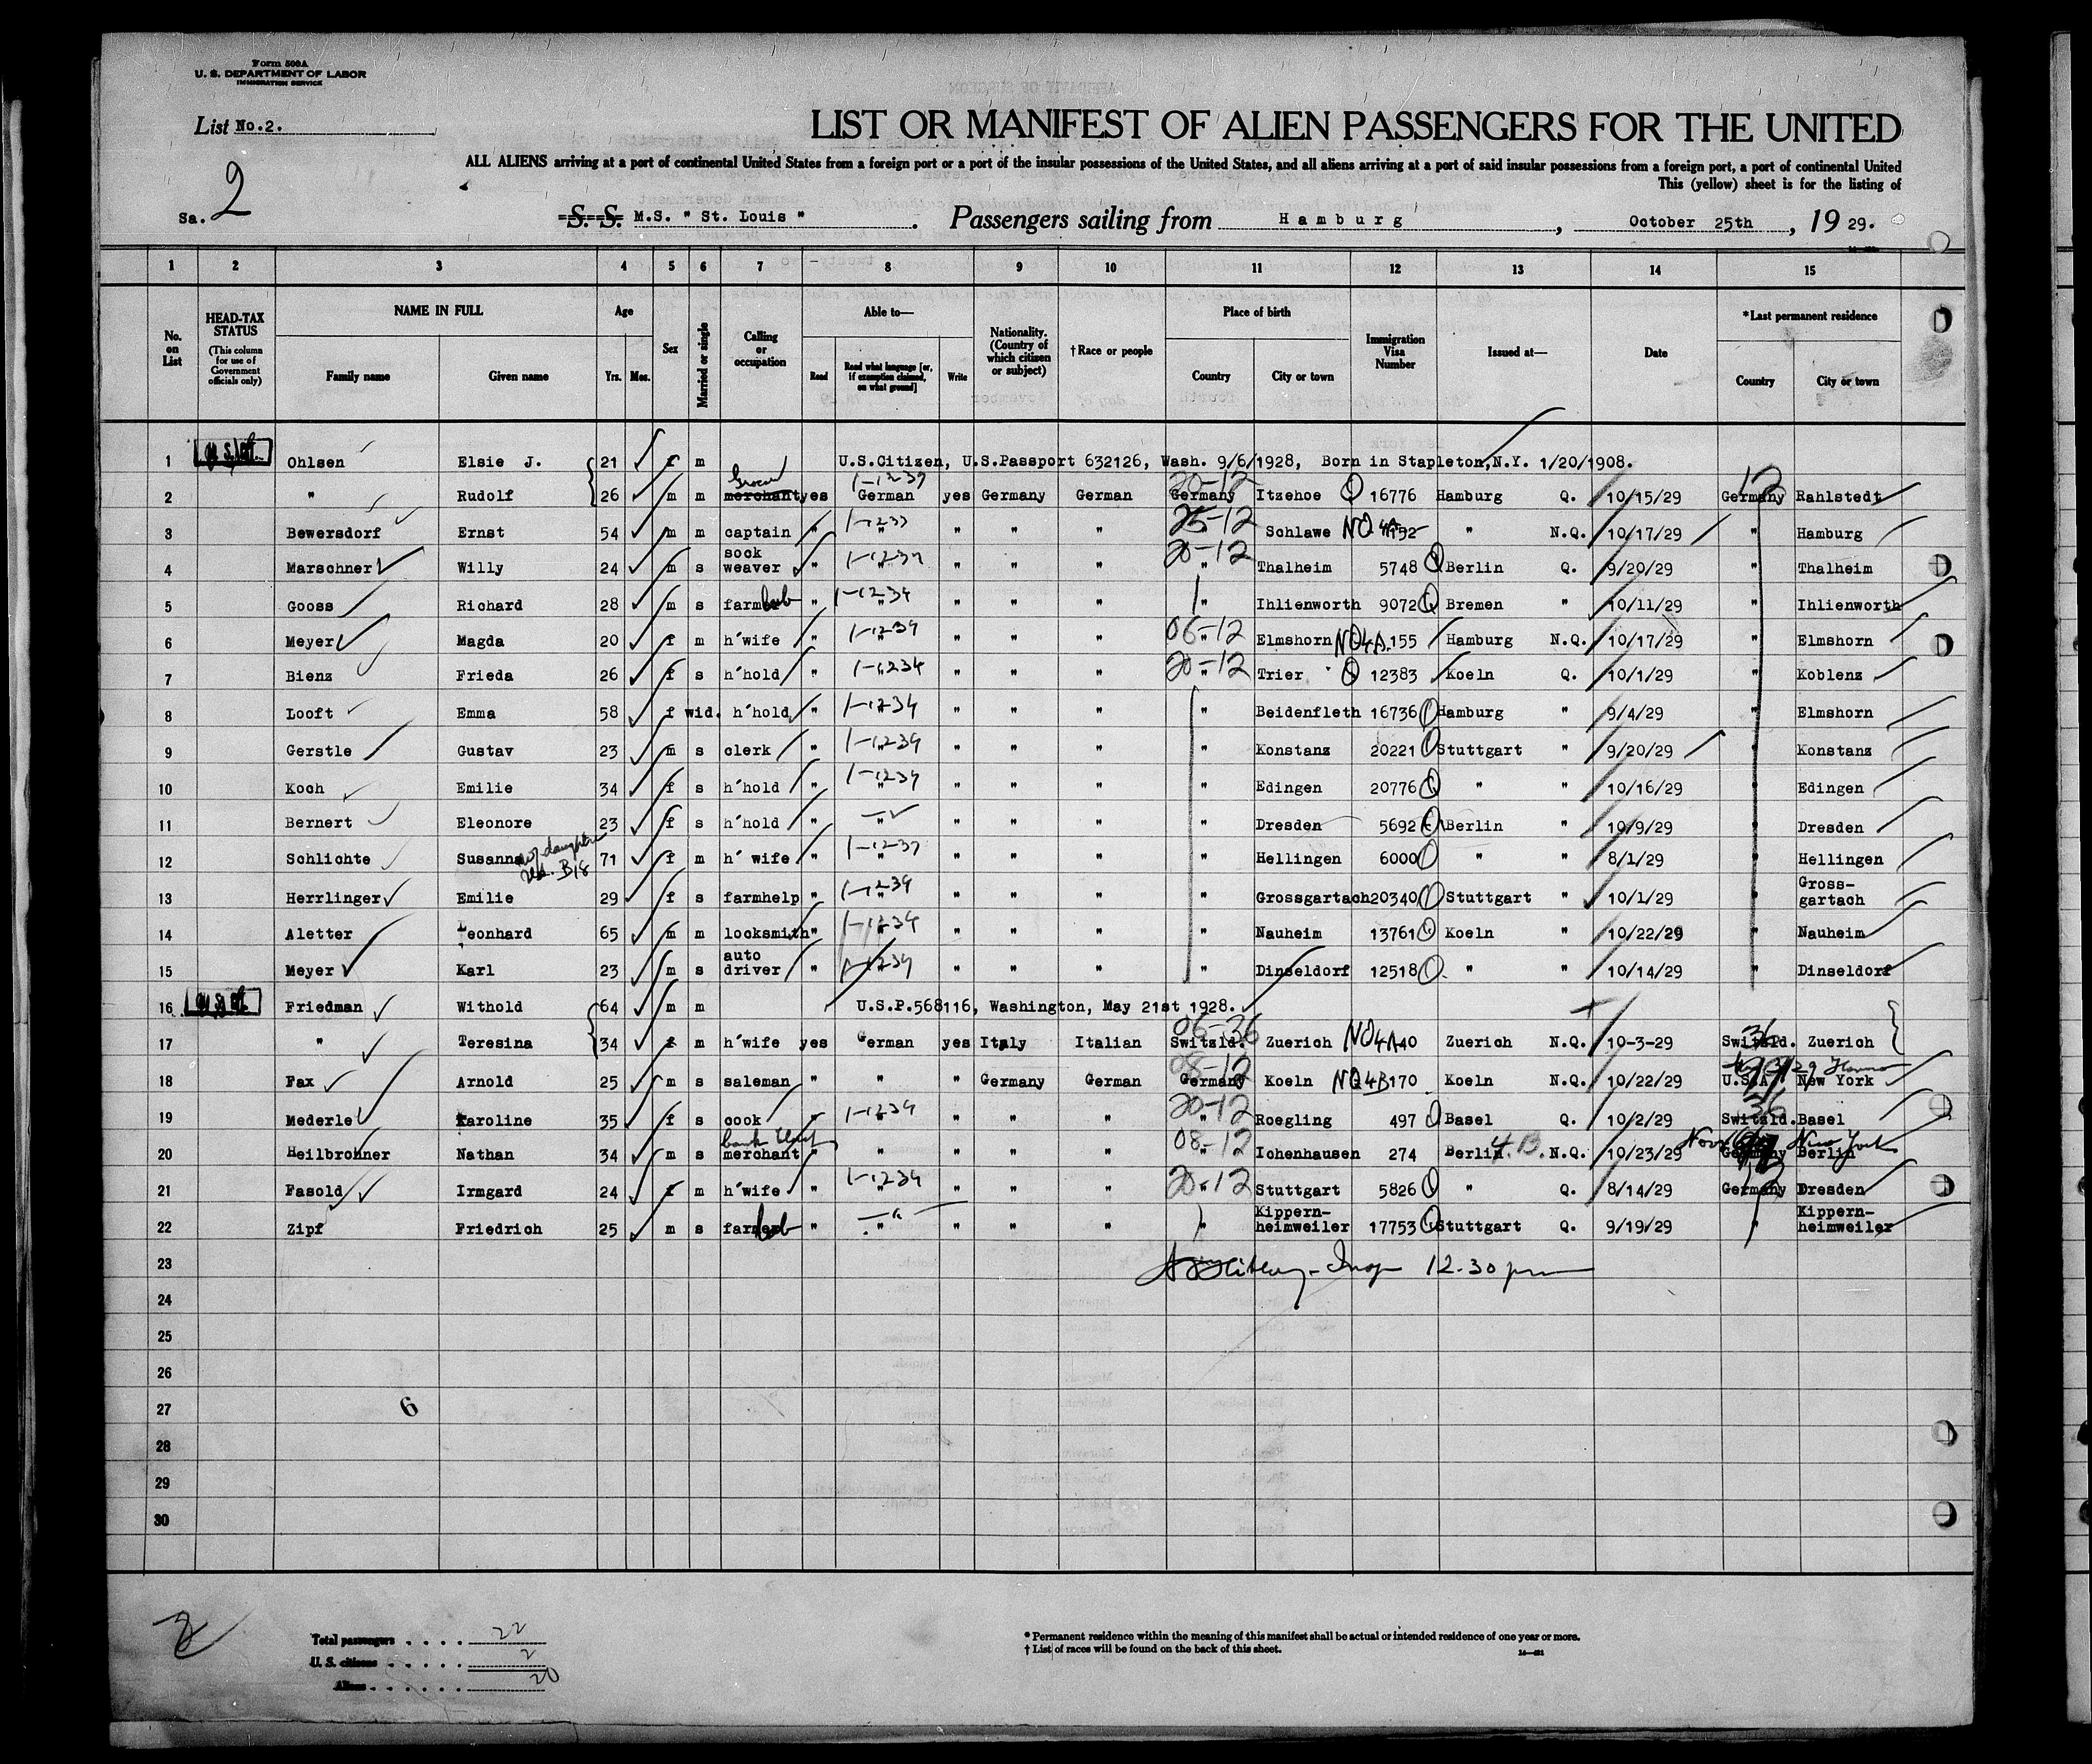 Form 500A
U. S. DEPARTMENT OF LABOR
IMMIGRATION SERVICE
List No.2.
LIST OR MANIFEST OF ALIEN PASSENGERS FOR THE UNITED
ALL ALIENS arriving at a port of continental United States from a foreign port or a port of the insular possessions of the United States, and all aliens arriving at a port of said insular possessions from a foreign port, a port of continental United
This (yellow) sheet is for the listing of
Sa. 2
S. S. M.S. " St. Louis ". Passengers sailing from Hamburg, October 25th, 19 29.
1 2 3 4 5 6 7 8 9 10 11 12 13 14 15
No. on List
HEAD-TAX STATUS (This column for use of Government officials only)
NAME IN FULL Family name Given name
Age Yrs. Mos.
Sex
Married or single
Calling or occupation
Able to— Read Read what language [or, if exemption claimed, on what ground] Write
Nationality. (Country of which citizen or subject)
†Race or people
Place of birth Country City or town
Immigration Visa Number
Issued at—
Date
*Last permanent residence Country City or town
1 Ohlsen Elsie J. 21 f m U.S.Citizen, U.S.Passport 632126, Wash. 9/6/1928, Born in Stapleton,N.Y. 1/20/1908.
2 " Rudolf 26 m m Grocer merchant yes 1-1234 German yes Germany German 20-12 Germany Itzehoe Q 16776 Hamburg Q. 10/15/29 12 Germany Rahlstedt
3 Bewersdorf Ernst 54 m m captain " " " " " 25-12 Schlawe NQ 4A " N.Q. 10/17/29 " Hamburg
4 Marschner Willy 24 m s sock weaver " " " " " 20-12 " Thalheim 5748 Q Berlin Q. 9/20/29 " Thalheim
5 Gooss Richard 28 m s farm lab " 1-1234 " " " " " Ihlienworth 9072 Q Bremen " 10/11/29 " Ihlienworth
6 Meyer Magda 20 f m h'wife " 1-1234 " " " " 06-12 " Elmshorn NQ4A 155 Hamburg N.Q. 10/17/29 " Elmshorn
7 Bienz Frieda 26 f s h'hold " 1-1234 " " " " 20-12 " Trier Q 12383 Koeln Q. 10/1/29 " Koblenz
8 Looft Emma 58 f wid. h'hold " 1-1234 " " " " " Beidenfleth 16736 Q Hamburg " 9/4/29 " Elmshorn
9 Gerstle Gustav 23 m s clerk " 1-1234 " " " " " Konstanz 20221 Q Stuttgart " 9/20/29 " Konstanz
10 Koch Emilie 34 f s h'hold " 1-1234 " " " " " Edingen 20776 Q " " 10/16/29 " Edingen
11 Bernert Eleonore 23 f s h'hold " " " " " " Dresden 5692 Q Berlin " 10/9/29 " Dresden
12 Schlichte Susanna 71 f m h' wife " " " " " " Hellingen 6000 Q " " 8/1/29 " Hellingen
13 Herrlinger Emilie 29 f s farmhelp " 1-1234 " " " " " Grossgartach 20340 Q Stuttgart " 10/1/29 " Gross-gartach
14 Aletter Leonhard 65 m m locksmith " 1-1234 " " " " " Nauheim 13761 Q Koeln " 10/22/29 " Nauheim
15 Meyer Karl 23 m s auto driver " 1-1234 " " " " " Dinseldorf 12518 Q " " 10/14/29 " Dinseldorf
16 Friedman Withold 64 m m U.S.P.568116, Washington, May 21st 1928.
17 " Teresina 34 f m h'wife yes German yes Italy Italian 06-36 Switzld. Zuerich NQ4A 40 Zuerich N.Q. 10-3-29 36 Switzld. Zuerich
18 Fax Arnold 25 m s saleman " " " Germany German 08-12 Germany Koeln NQ4B 170 Koeln N.Q. 10/22/29 U.S.A. New York
19 Mederle Karoline 35 f s cook " 1-1234 " " " " 20-12 " Roegling 497 Q Basel Q. 10/2/29 36 Switzld. Basel
20 Heilbronner Nathan 34 m s bank clerk merchant " " " " " 08-12 " Ichenhausen 274 Berlin 4.B. N.Q. 10/23/29 Germany Berlin New York
21 Fasold Irmgard 24 f m h'wife " 1-1234 " " " " 20-12 " Stuttgart 5826 Q " Q. 8/14/29 Germany Dresden
22 Zipf Friedrich 25 m s farmer lab " " " " " " Kippern-heimweiler 17753 Q Stuttgart Q. 9/19/29 " Kippern-heimweiler
23 12-30 pm
24
25
26
27 6
28
29
30
2
Total passengers . . . . 22
U. S. citizens . . . . . . 2
Aliens . . . . . . . 20
* Permanent residence within the meaning of this manifest shall be actual or intended residence of one year or more.
† List of races will be found on the back of this sheet.